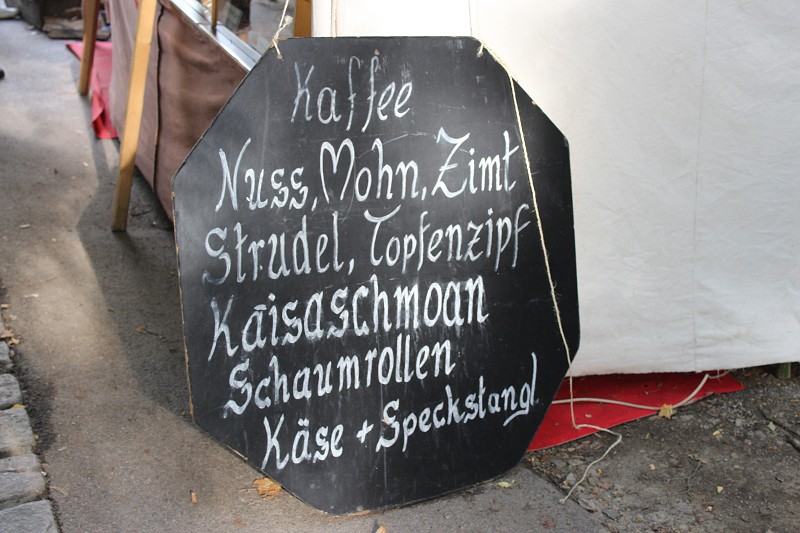 Kaffee
Nuss, Mohn, Zimt
Strudel, Topfenzipf
Kaisaschmoan
Schaumrollen
Käse + Speckstangl